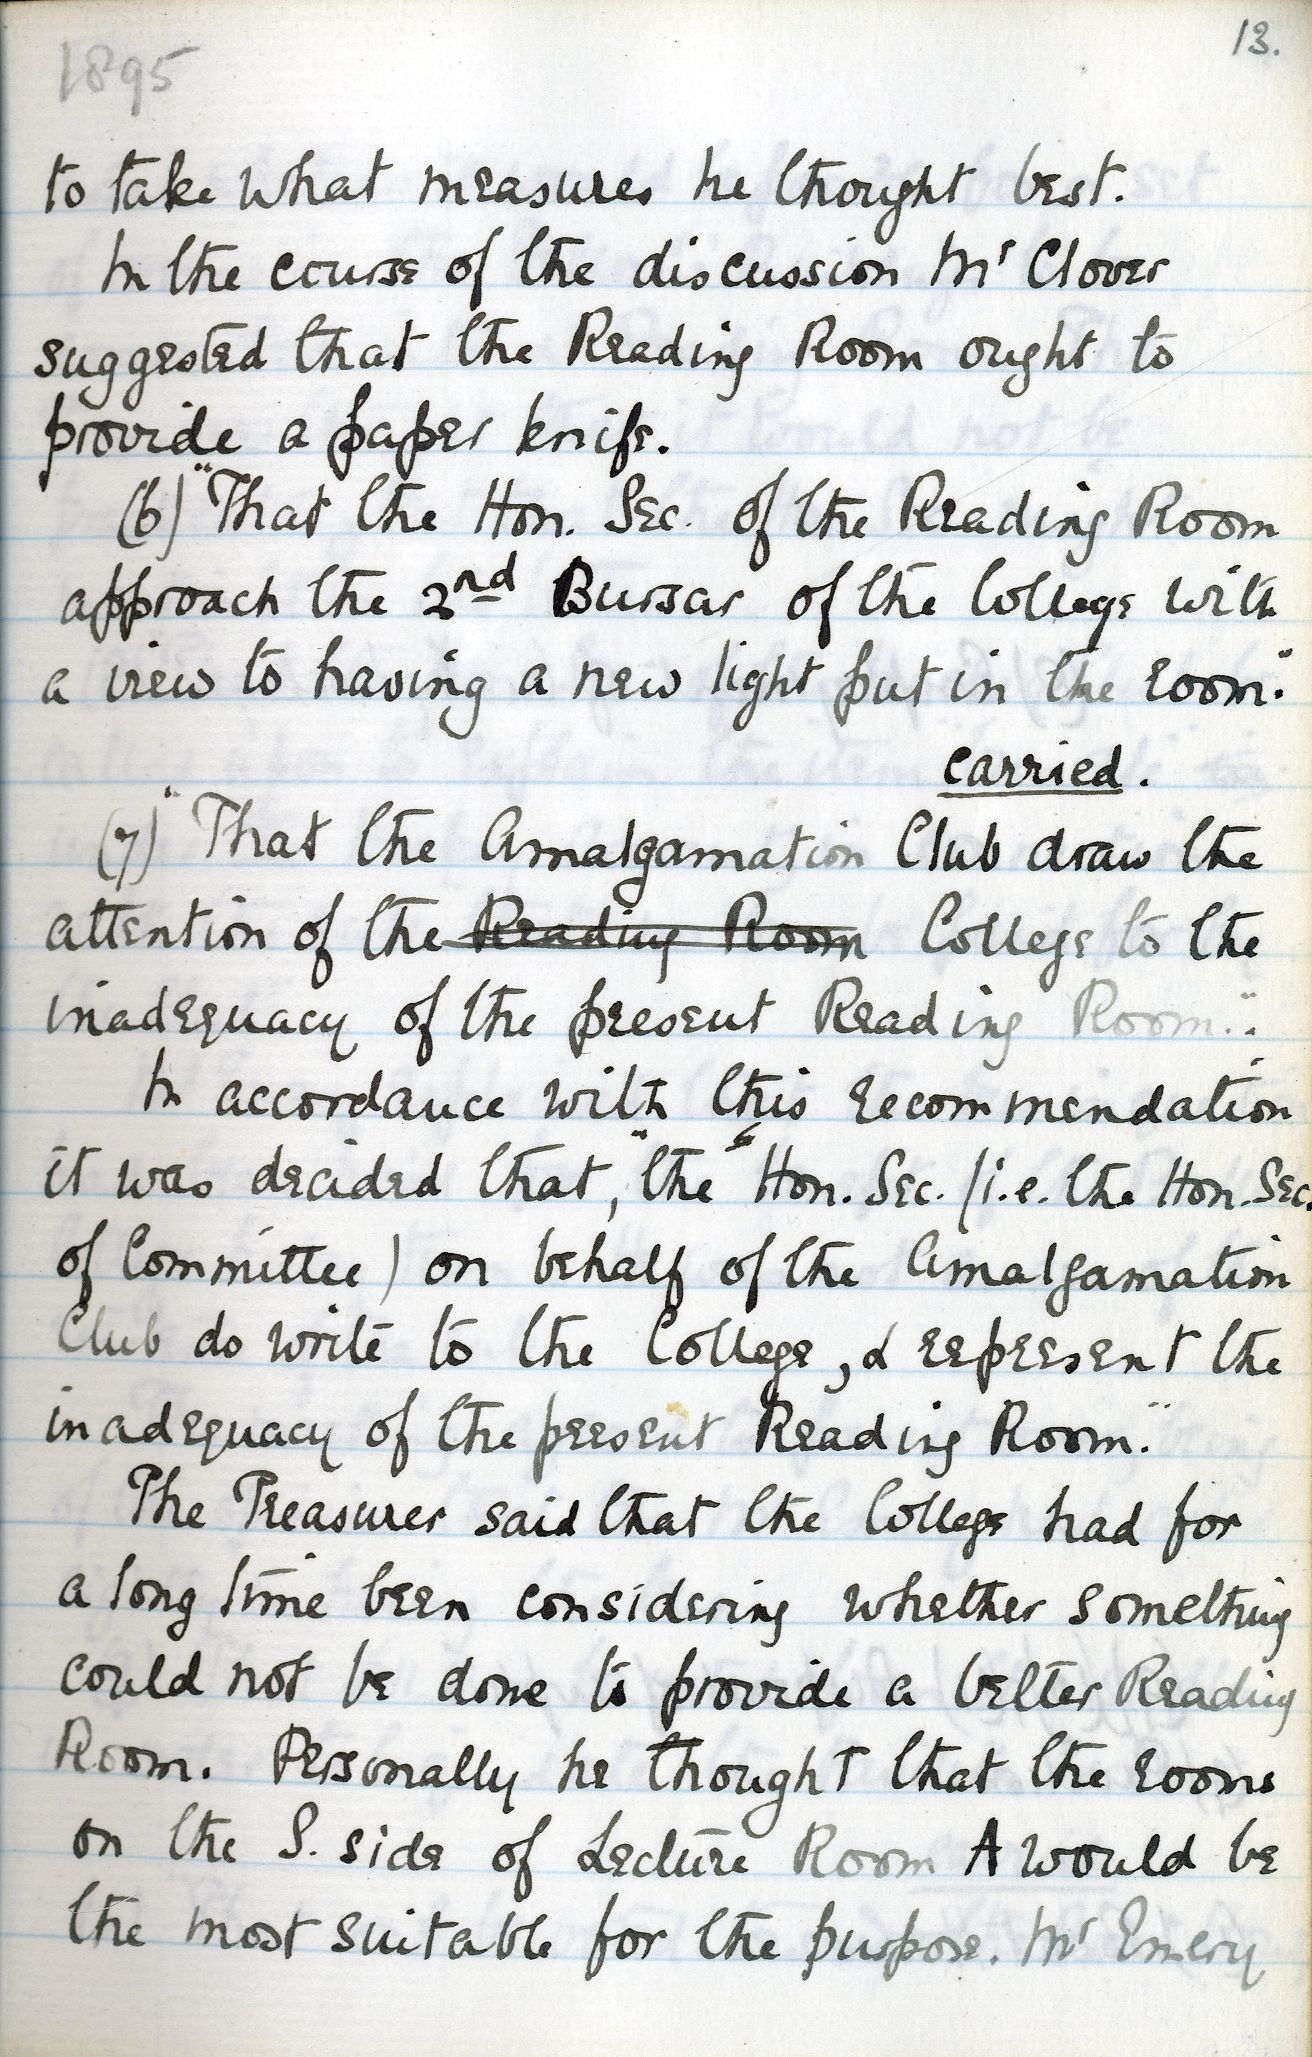 1895
13.
to take what measures he thought best.
In the course of the discussion Mr Clover
suggested that the Reading Room ought to
provide a paper knife.
(6) "That the Hon. Sec. of the Reading Room
approach the 2nd Bursar of the College with
a view to having a new light put in the room."
carried.
(7) "That the Amalgamation Club draw the
attention of the Reading Room College to the
inadequacy of the present Reading Room."
In accordance with this recommendation
it was decided that, "the "Hon. Sec. (i.e. the Hon. Sec.
of Committee) on behalf of the Amalgamation
Club do write to the College, & represent the
inadequacy of the present Reading Room."
The Treasurer said that the College had for
a long time been considering whether something
could not be done to provide a better Reading
Room. Personally he thought that the rooms
on the S. side of Lecture Room A would be
the most suitable for the purpose. Mr Emery